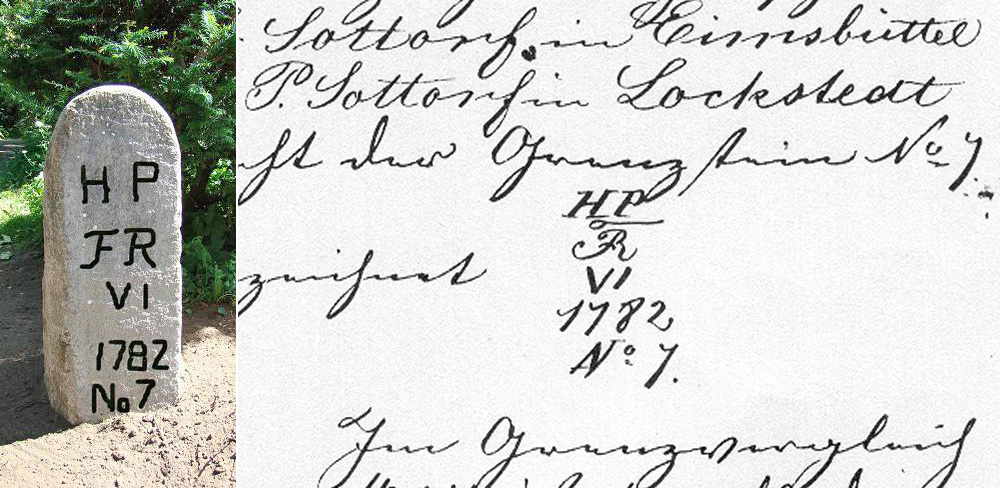 H P
FR
VI
1782
No 7
Sottorf in Eimsbüttel
P. Sottorf in Lockstedt
ht der Grenzstein No 7.
HP
FR
VI
1782
No 7.
zeichnet
Im Grenzvergleich